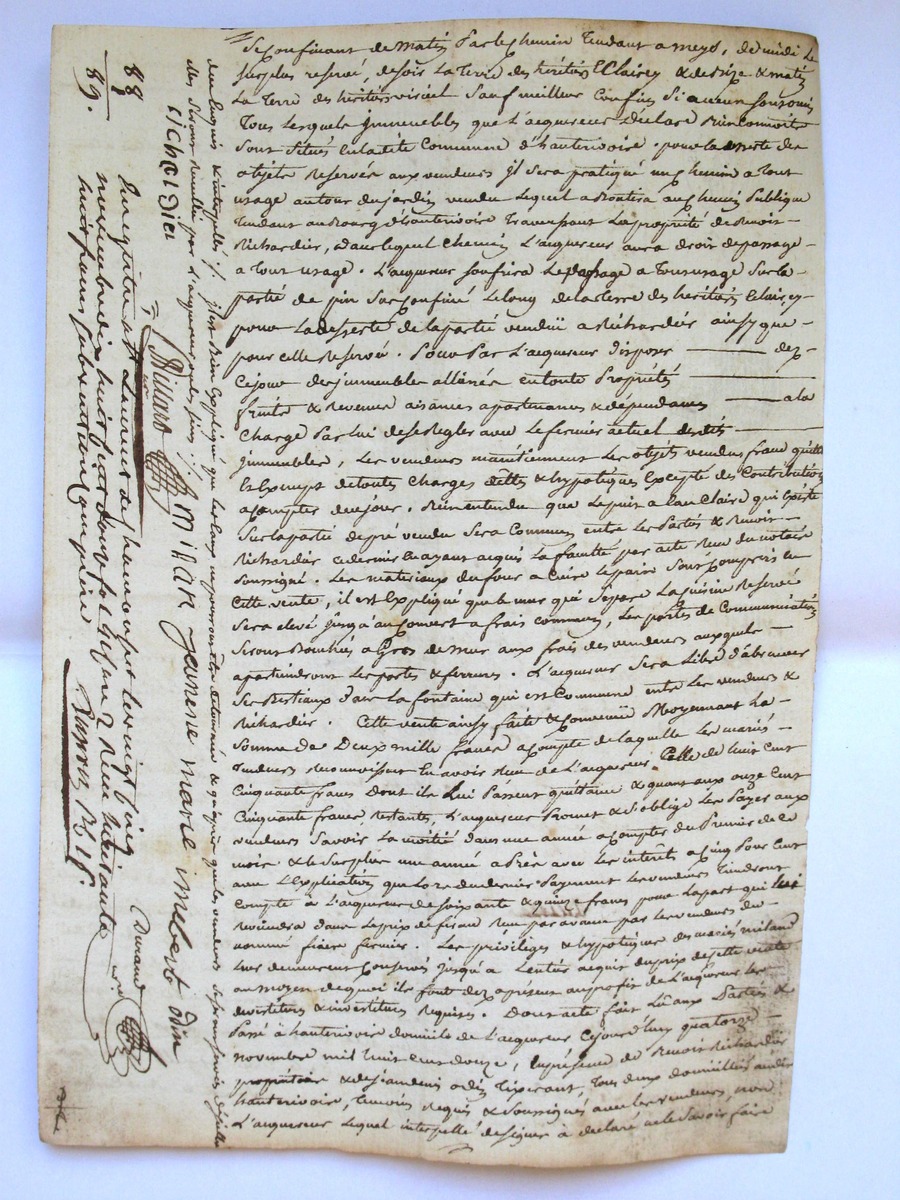 Se Confinant de matin Par le Chemin Tendant a meys, de midi le
surplus reservé, de soir La Terre des heritiers Clairey & de bize & matin
La Terre des heritiers sauf meilleurs Confins Si aucun Sont omis
Tous Lesquels Immeubles que L'acquereur déclare Bien Connoitre
Sont Situés en La dite Commune d'hauterivoire . pour la deserte des
objets Reservés aux vendeurs il Sera pratiqué un Chemin a Tout
usage autour du jardin vendu Lequel aboutira au Chemin Publique
Tendant au Bourg d'hauterivoire Traversant La propriété de Benoit
Richardier, & dans lequel Chemin L'acquereur aura droit de passage
a Tout usage . L'acquereur Soufrira Le Passage a Tout usage Sur la
partie de pin Sus Confiné Le long de la terre des heritiers Clairey
pour La desserte de la partie vendüe a Richardier ainsy que
pour celle Reservée . Pour Par L'acquereur disposer dez
Ce jour des immeubles alliénés en toute Propriété
fruits & Revenus aisances apartenances & dépendances a la
Charge Par Lui de Se Regler avec Le fermier actuel des dits
immeubles, Les vendeurs maintiennent Les objets vendus francs quittes
Et Exempt de toutes Charges dettes & hypotéques Excepté des Contributions
a Compter de ce jour . Bien entendu que Le puit a Eau Claire qui Existe
Sur La partie de pré vendu Sera Commun entre Les Parties & Benoit
Richardier ce dernier En ayant acquis La faculté par acte Reçu du notaire
Soussigné . Les materiaux du four a Cuire Le pain Sont Compris en
Cette vente, il est Expliqué que le mur qui Separe La Cuisine Reservée
Sera elevé jusqu'au Couvert a frais communs, Les portes de Communication
Seront Bouchées a Gros de mur aux frais des vendeurs auxquels
apartiendront Les portes & ferrures . L'acquereur Sera Libre d'abreuver
Ses Bestiaux dans La fontaine qui est Commune entre Les vendeurs &
Richardier . Cette vente ainsy faite & Convenüe Moyennant La
Somme de Deux mille francs a Compte de laquelle Les mariés
vendeurs Reconnoissent En avoir Reçu de L'acquereur Celle de huit Cent
Cinquante francs Dont ils Lui Passent quittance & quant aux onze Cent
Cinquante francs Restants, L'acquereur Promet & S'oblige Les Payer aux
vendeurs Savoir La moitié dans une année a Compter du Premier de ce
mois & le Surplus une année a Près avec Les interêts a Cinq Pour Cent
avec L'Explication que Lors du dernier Payement Les vendeurs Tiendront
Compte à L'acquereur de Soixante & quinze francs pour La part qui lui
Reviendra dans Le prix de ferme Reçu par avance par Les vendeurs du
nommé fermier . Les priviléges & hypotéques des mariés miland
Leur demeurent Conservés jusqu'a L'entier acquit du prix de Cette vente
au moyen de quoi ils font dez a présent au profit de L'acquereur Les
devêtitures & investitures Requises . Dont acte fait Lû aux Parties &
Passé à hauterivoire domicile de L'acquereur Cejourd'huy quatorze
novembre mil huit Cent douze, En présence de Benoit Richardier
propriétaire & de jean odin Tisserant, Tous deux domiciliés au dit
hauterivoire, Temoins Requis & Soussignés avec Les vendeurs, non
L'acquereur Lequel interpellé de Signer à déclaré ne le Savoir faire
de ce Enquis & interpellé ./.
des Seront par L'acquereur
richardier
milan jeanne marie imbert odin
Durand
88
89.
Enregistré à St Laurent de chamousset Le vingt Cinq
novembre dix huit cent douze fol